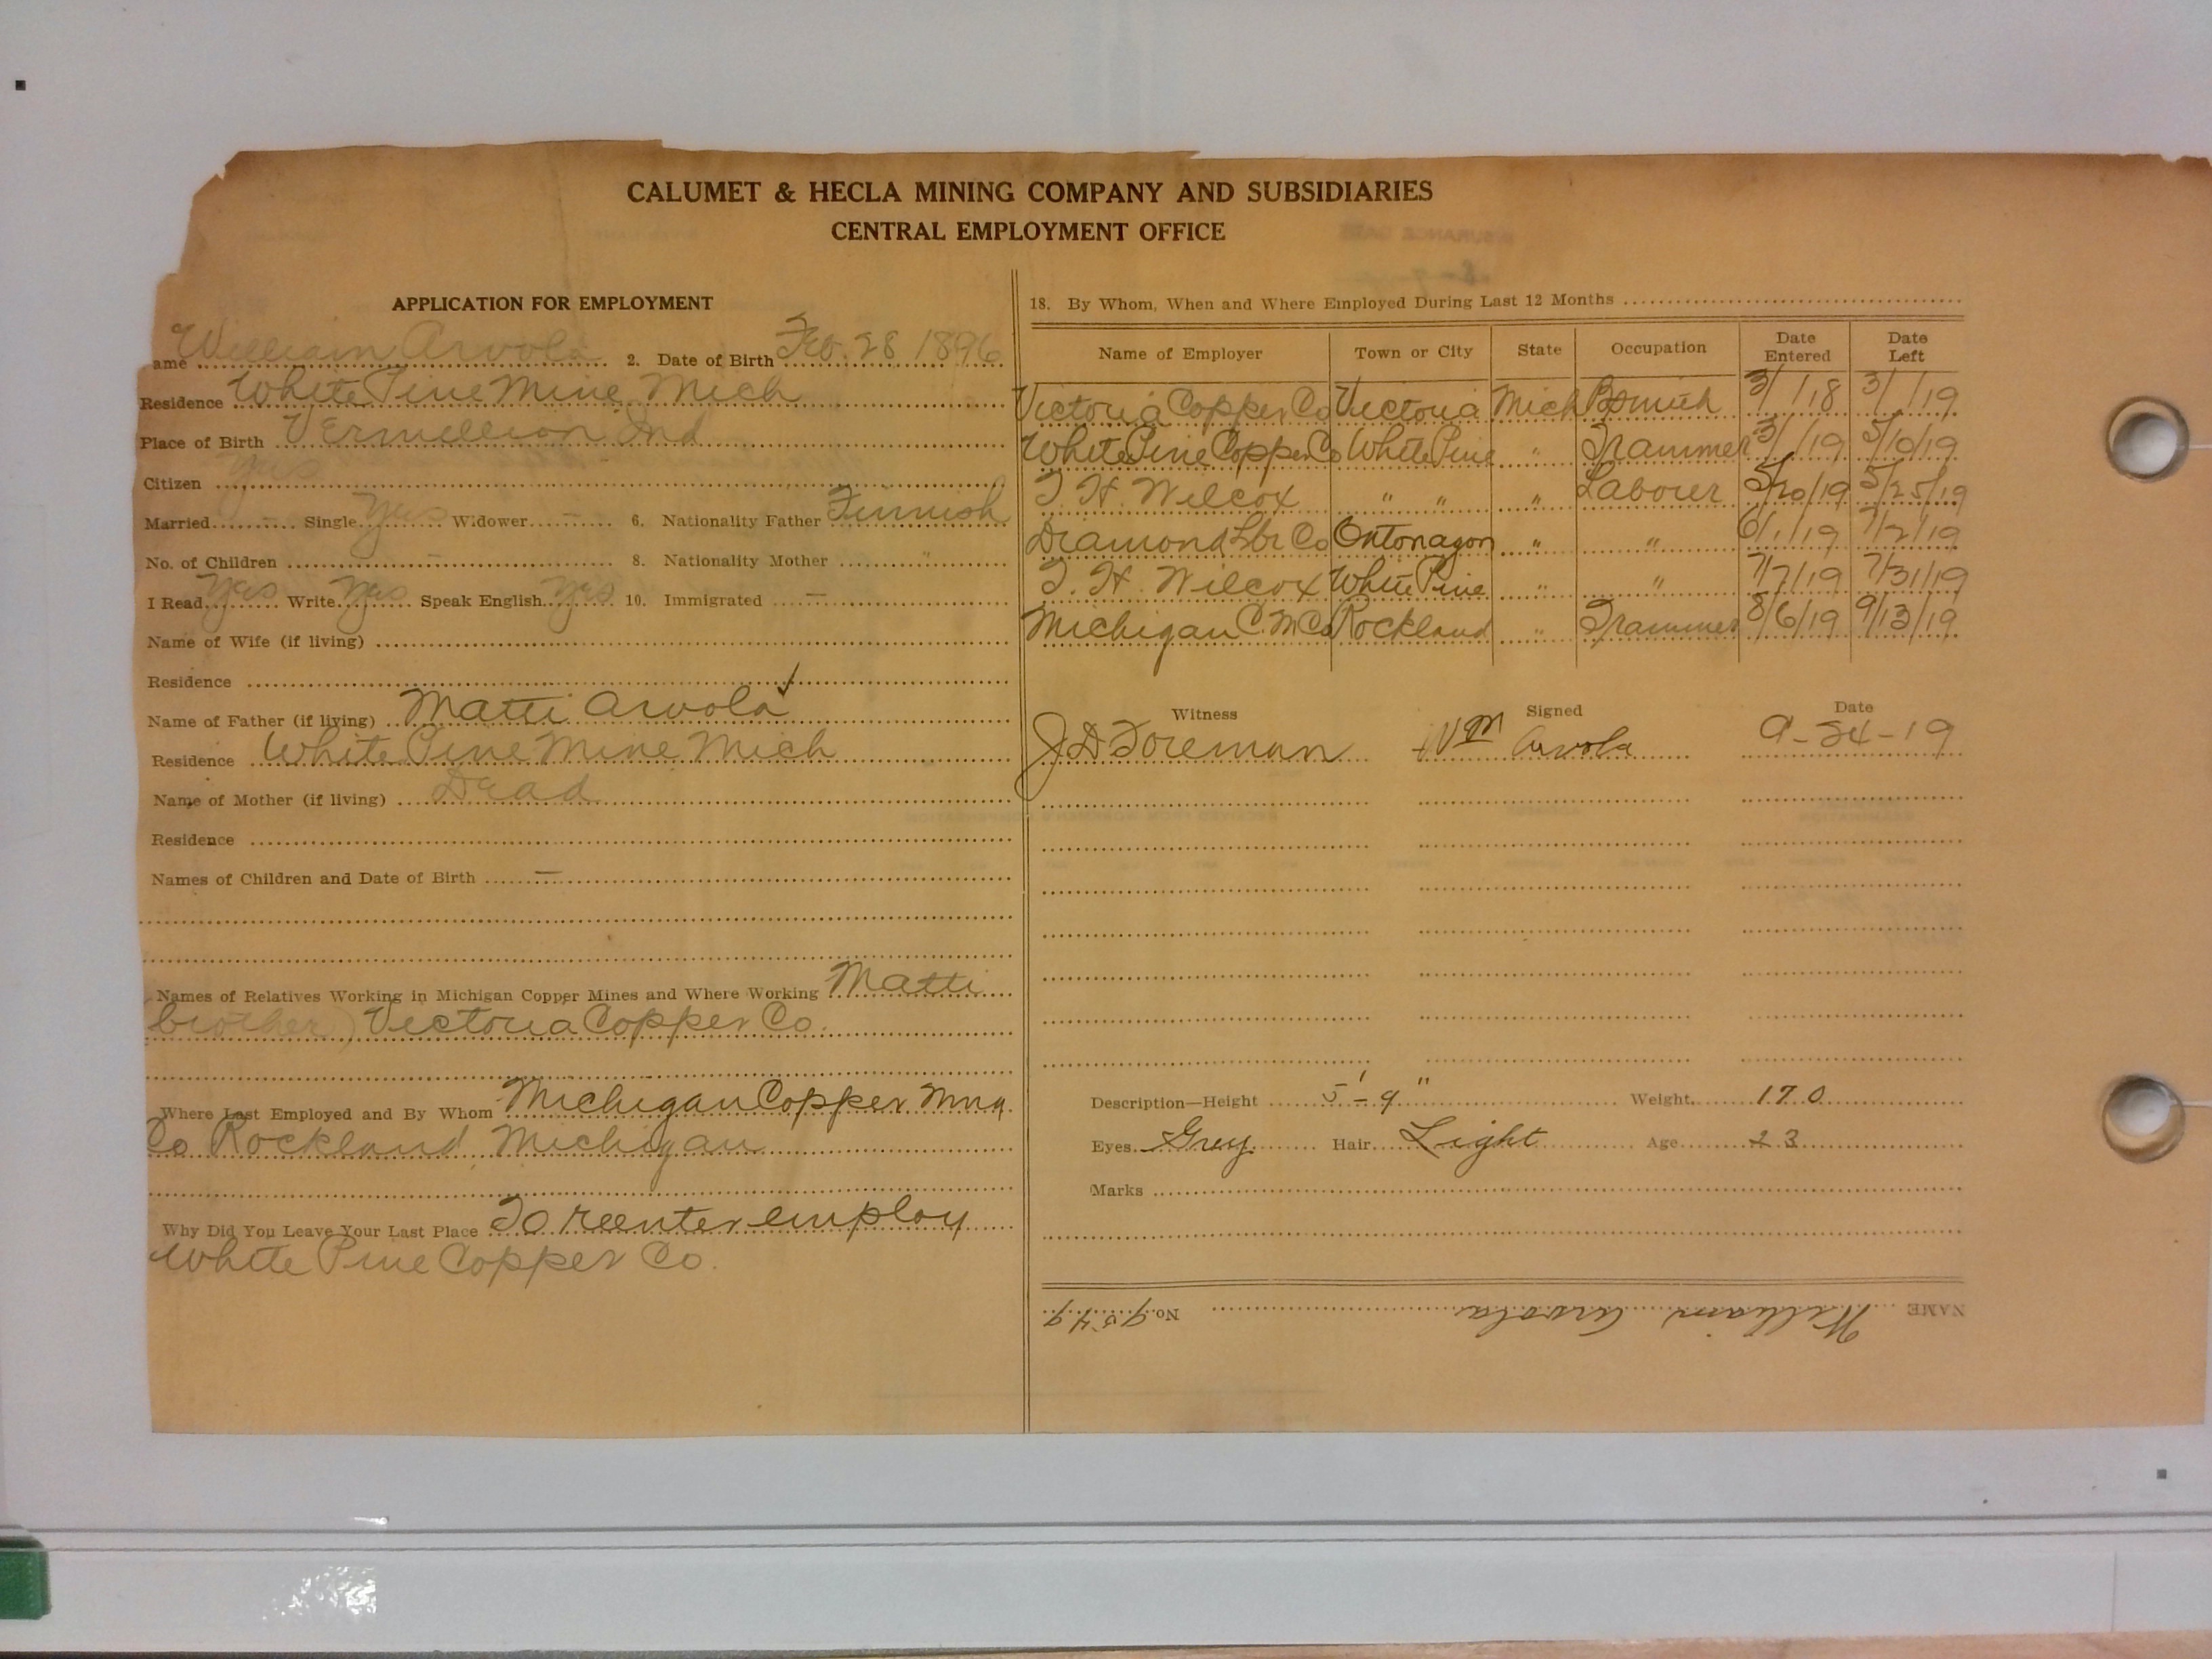 CALUMET & HECLA MINING COMPANY AND SUBSIDIARIES
CENTRAL EMPLOYMENT OFFICE
APPLICATION FOR EMPLOYMENT
ame William Arvola 2. Date of Birth Feb. 28 1896
Residence White Pine Mine Mich
Place of Birth Vermellion Ind
Citizen Yes
Married - Single Yes Widower - 6. Nationality Father Finnish
No. of Children - 8. Nationality Mother "
I Read Yes Write Yes Speak English Yes 10. Immigrated -
Name of Wife (if living)
Residence
Name of Father (if living) Matti Arvola ✓
Residence White Pine Mine Mich
Name of Mother (if living) Dead
Residence
Names of Children and Date of Birth -
Names of Relatives Working in Michigan Copper Mines and Where Working Matti
brother) Victoria Copper Co.
Where Last Employed and By Whom Michigan Copper Mng
Co Rockland, Michigan
Why Did You Leave Your Last Place To reenter employ
White Pine Copper Co.
18. By Whom, When and Where Employed During Last 12 Months
Name of Employer Town or City State Occupation Date Entered Date Left
Victoria Copper Co Victoria Mich 3/1/18 3/1/19
White Pine Copper Co White Pine " Trammer 3/1/19 5/10/19
T. H. Wilcox " " " Labourer 5/20/19 5/25/19
Diamond Lbr Co Ontonagon " " 6/1/19 7/2/19
T. H. Wilcox White Pine " " 7/7/19 7/31/19
Michigan C. M Co Rockland " Trammer 8/6/19 9/13/19
Witness Signed Date
J D Foreman Wm Arvola 9-24-19
Description—Height 5'-9" Weight 170
Eyes Grey Hair Light Age 23
Marks
NAME William Arvola No. 9549